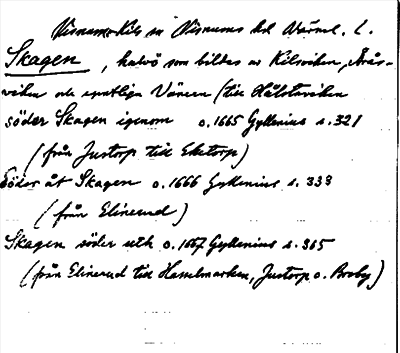 Visnums-Kils sn Visnums hd Värml. l.
Skagen, halvö som bildas av Kilsviken, Årås-
viken och egentliga Vänern (till Hultstaviken
söder Skagen igenom o. 1665 Gyllenius s. 321
(från Justorp till Eketorp)
Söder åt Skagen o. 1666 Gyllenius s. 333
(från Elinerud)
Skagen söder uth o. 1667 Gyllenius s. 365
(från Elinerud till Hasselmarken, Justorp o. Broby)